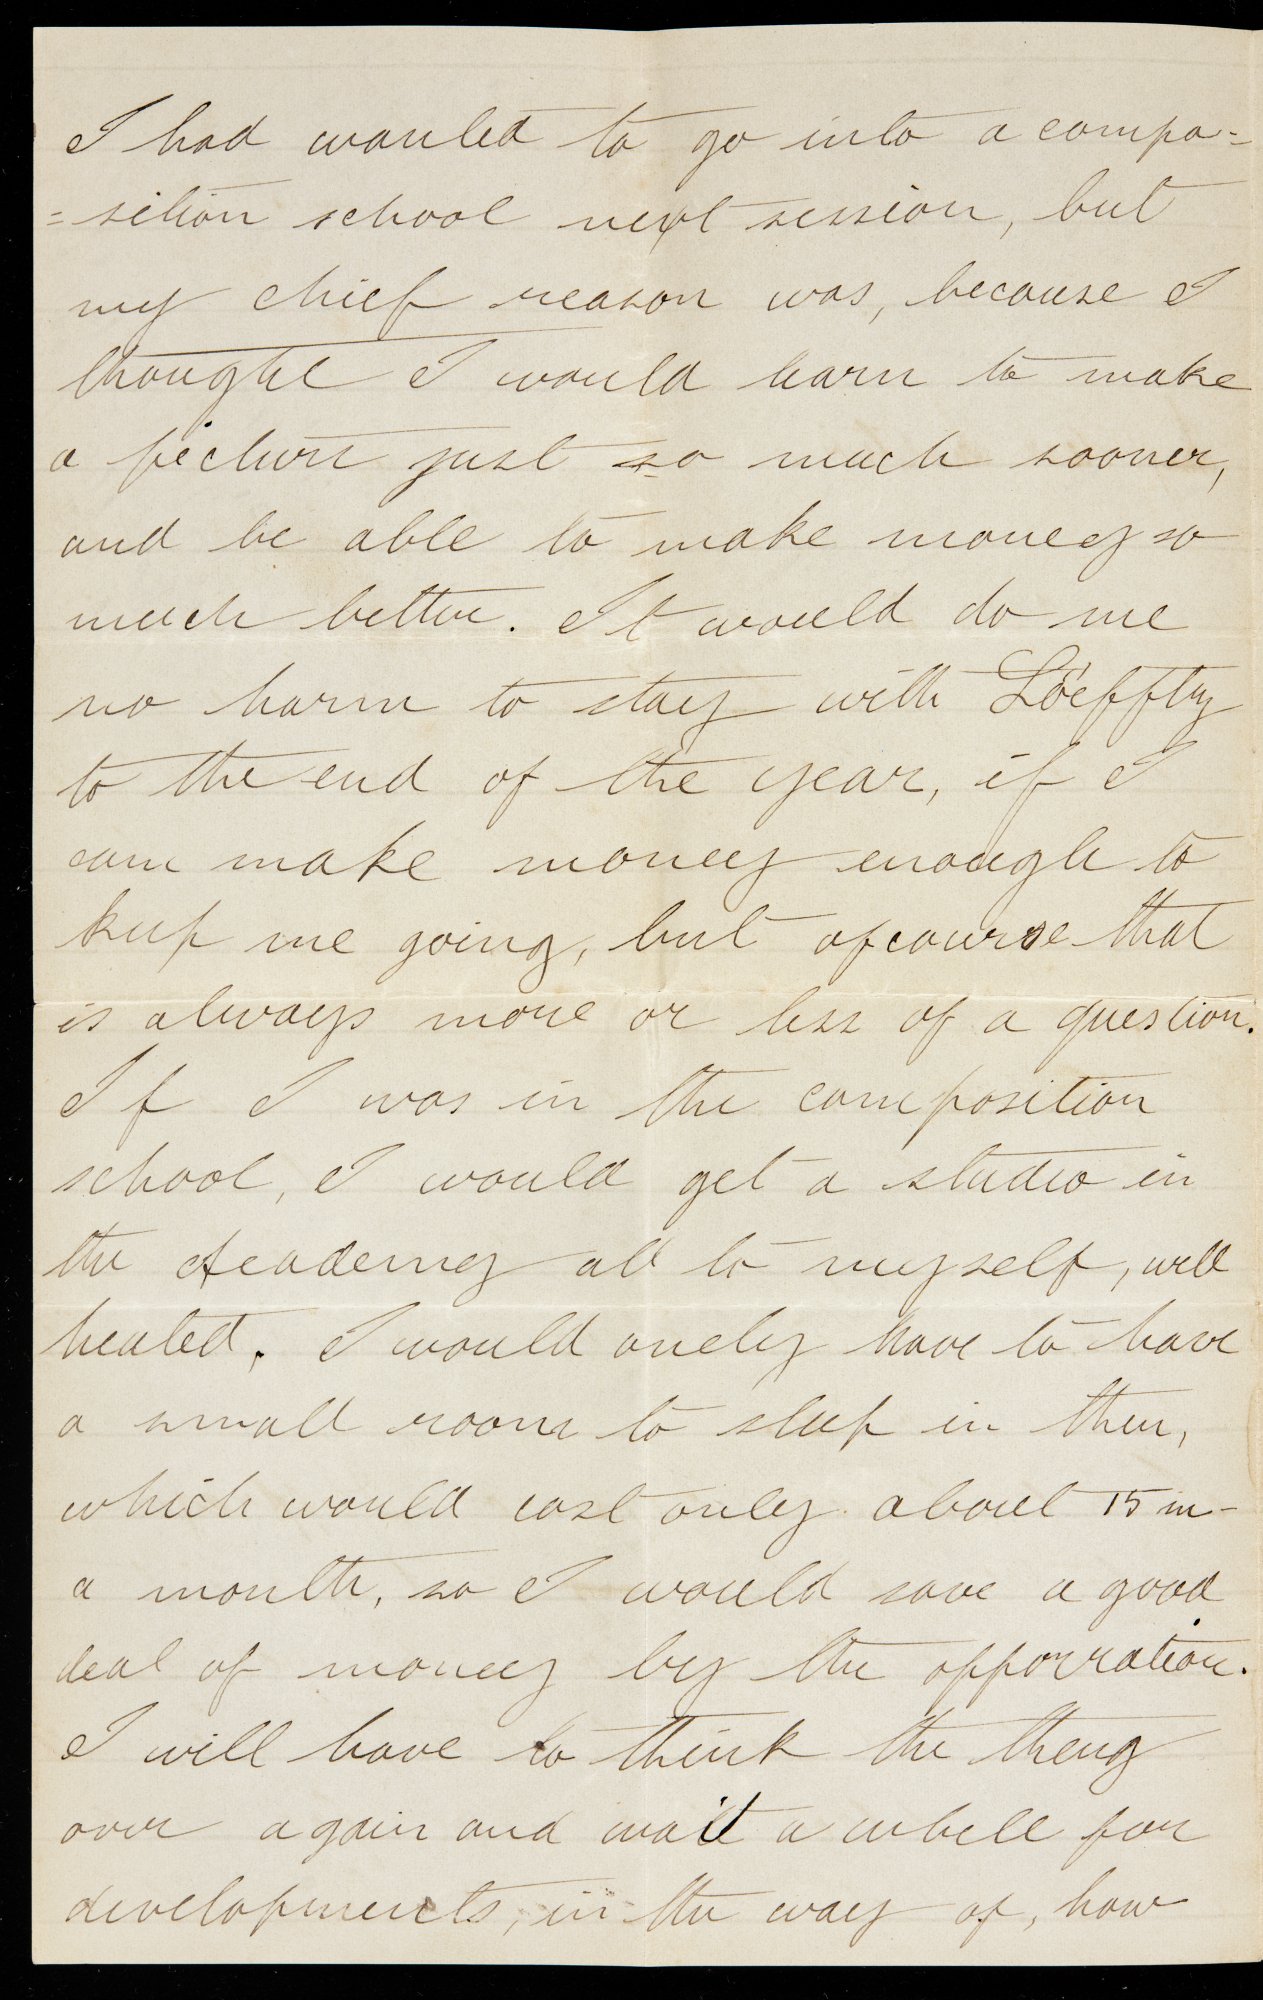 I had wanted to go into a compo=
=sition school next session, but
my chief reason was, because I
thought I would learn to make
a picture just so much sooner,
and be able to make money so
much better. It would do me
no harm to stay with Löeffty
to the end of the year, if I
can make money enough to
keep me going, but ofcourse that
is always more or less of a question.
If I was in the composition
school, I would get a studio in
the Academy all to myself, well
heated. I would onely have to have
a small room to sleep in then,
which would cost only about 15 m-
a month, so I would save a good
deal of money by the opporration.
I will have to think the thing
over again and wait a while for
developments, in the way of, how